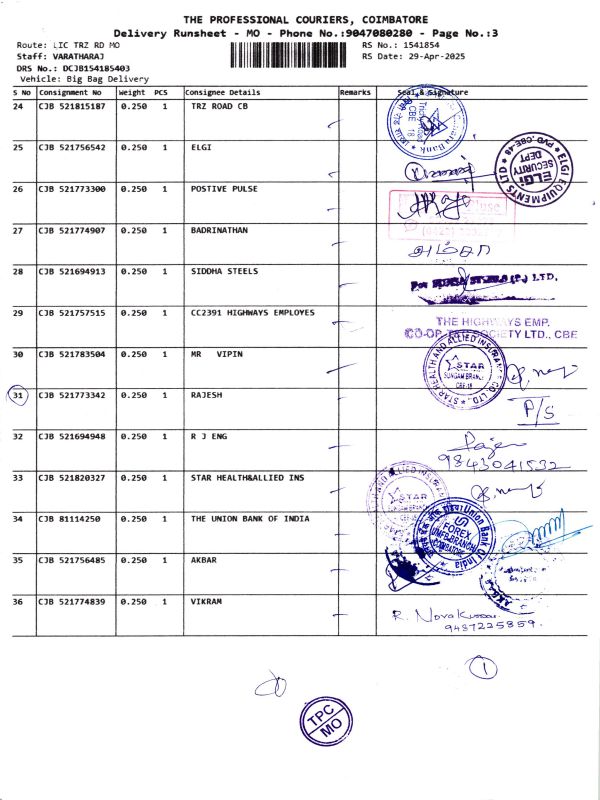 THE PROFESSIONAL COURIERS, COIMBATORE
Delivery Runsheet - MO - Phone No.:9047080280 - Page No.:3
Route: LIC TRZ RD MO RS No.: 1541854
Staff: VARATHARAJ RS Date: 29-Apr-2025
DRS No.: DCJB154185403
Vehicle: Big Bag Delivery
S No Consignment No Weight PCS Consignee Details Remarks Seal & Signature
24 CJB 521815187 0.250 1 TRZ ROAD CB
25 CJB 521756542 0.250 1 ELGI
ELGI EQUIPMENTS LTD PVD, CBE-48
ELGi
SECURITY
DEPT
26 CJB 521773300 0.250 1 POSTIVE PULSE
27 CJB 521774907 0.250 1 BADRINATHAN
28 CJB 521694913 0.250 1 SIDDHA STEELS
For STEELS (P.) LTD.,
29 CJB 521757515 0.250 1 CC2391 HIGHWAYS EMPLOYES
THE HIGHWAYS EMP.
CO-OP. SOCIETY LTD., CBE
30 CJB 521783504 0.250 1 MR VIPIN
STAR HEALTH AND ALLIED INSURANCE CO. LTD.
STAR
SUNGAM BRANCH
CBE-18
31 CJB 521773342 0.250 1 RAJESH
P/S
32 CJB 521694948 0.250 1 R J ENG
9843041532
33 CJB 521820327 0.250 1 STAR HEALTH&ALLIED INS
STAR
34 CJB 81114250 0.250 1 THE UNION BANK OF INDIA
Union Bank Of India
FOREX
UMFB-BRANCH
COIMBATORE
35 CJB 521756485 0.250 1 AKBAR
36 CJB 521774839 0.250 1 VIKRAM
R. Novakumar
9487225859.
1
TPC
MO